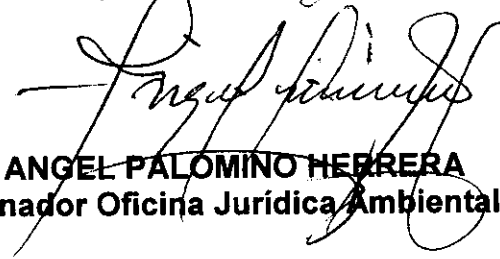 ANGEL PALOMINO HERRERA
nador Oficina Jurídica Ambiental